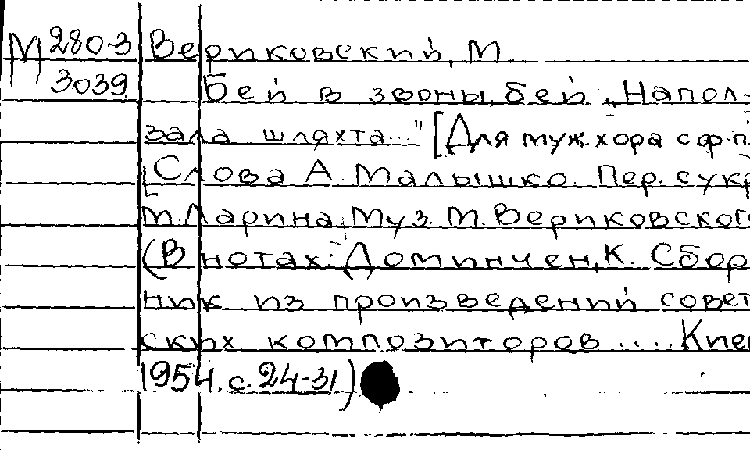 М 280-3 Вериковский, М.
3039 Бей в звоны, бей „Напол-
зала шляхта..." [Для муж. хора с ф.-п.
[Слова А. Малышко. Пер. с укр
М. Ларина. Муз. М. Вериковског
(В нотах: Доминчен, К. Сбор
ник из произведений совет
ских композиторов .... Кие
1954. с. 24-31)